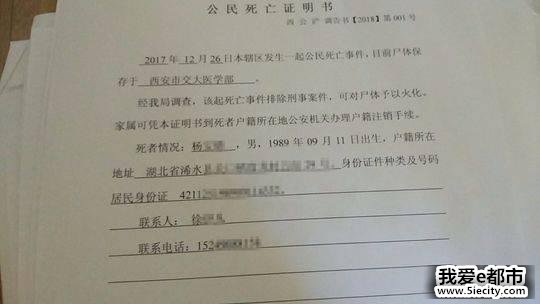 公民死亡证明书
西 公 浐 调告书【2018】第 001 号
2017 年 12 月 26 日本辖区发生一起公民死亡事件,目前尸体保
存于 西安市交大医学部 。
经我局调查,该起死亡事件排除刑事案件,可对尸体予以火化。
家属可凭本证明书到死者户籍所在地公安机关办理户籍注销手续。
死者情况: 杨 ,男,1989 年 09 月 11 日出生,户籍所在
地址 湖北省浠水 身份证件种类及号码
居民身份证 4211
联系人: 徐
联系电话:152
我爱e都市
www.5iecity.com